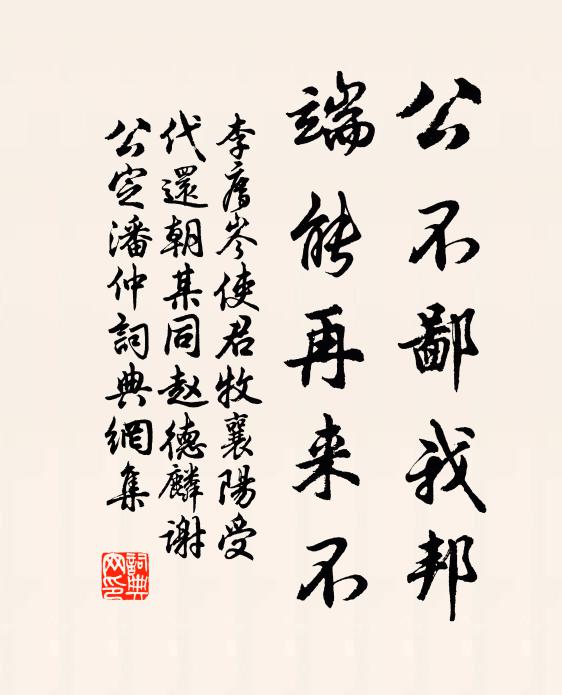 公不鄙我邦
端能再来不
李膺岑使君牧襄陽受
代還朝某同赵德麟谢
公定潘仲詞典網集
詞典网印